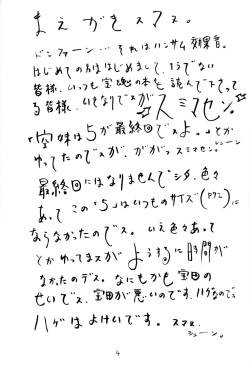 まえがきスマス。
ドンファーン…それはハンサム効果音。
はじめての方ははじめまして、そうでない
皆様、いつも宝魂の本を読んで下さって
る皆様、いきなりでスが
☆スミマセン☆
「空妹は5が最終回でスよ。」とか
ゆってたのでスが、ががっスミマセン。ジューン
最終回にはなりませんでシタ。色々
あって この「5」はいつものサイズ(P数)に
ならなかったのでス。いえ色々あって
とかゆってまスが ようするに時間が
なかったのデス。なにもかも宝田の
せいでス、宝田が悪いのです、ハゲなのでス
ハゲはよけいです。スマス
ジューン。
4